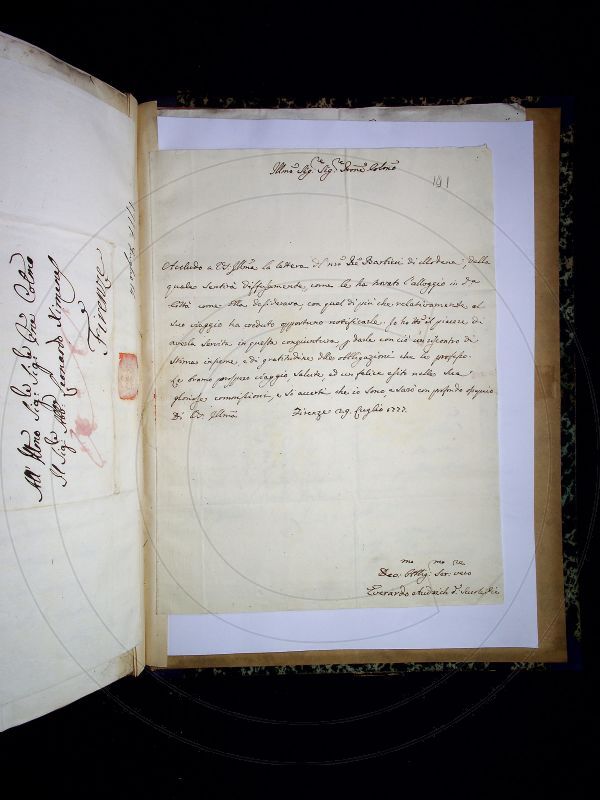 Illmo Sig.re Sig.re Prone Colmo
191
Accludo a V.S. Illma la lettera del nro Pre Barbieri di Modena, dalla
quale sentirà diffusamente, come le ha trovato l'alloggio in da
Città come Ella desiderava, con quel di più che relativamente al
suo viaggio ha creduto opportuno notificarle. Io ho tto il piacere di
averla servita in questa congiuntura, p darle con ciò un riscontro di
stima insieme, e di gratitudine alle obbligazioni che le professo.
Le bramo prospero viaggio, salute, ed un felice esito nelle sue
gloriose commissioni, e si accerti che io sono, e sarò con profondo ossequio
Di V.S. Illma Firenze 29. Luglio 1777.
Devmo: Obblig.mo Ser:re vero
Everardo Audrich d. Scuole Pie
All' Illmo Sig.re Sig.re Prone Colmo
Il Sig.re Abb. Leonardo Ximenes
Firenze